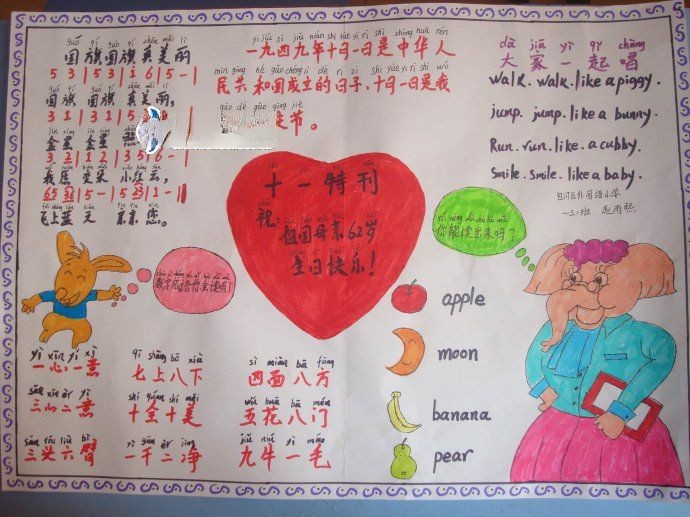 guó qí guó qí zhēn měi lì
国旗国旗真美丽
5 3 | 5 3 | i 6 | 5 - |
国旗 国旗 真美丽,
3 1 | 3 1 | 3 5 | 3 - |
金星 金星
3. 2 | 1 2 | 3 5 | 6 - |
我愿 变朵 小红云,
飞上蓝天 亲亲 您。
yī jiǔ sì jiǔ nián shí yuè yī rì shì zhōng huá rén
一九四九年十月一日是中华人
mín gòng hé guó chéng lì de rì zi shí yuè yī rì shì wǒ
民共和国成立的日子,十月一日是我
guó qìng jié
庆节。
dà jiā yī qǐ chàng
大家一起唱
walk. walk. like a piggy.
jump. jump. like a bunny.
Run. run. like. a cubby.
Smile. smile. like a baby.
包河区外国语小学
十一特刊
祝:
祖国母亲62岁
生日快乐!
你能读出来吗?
数字成语你会读吗!
apple
moon
banana
pear
yì xīn yí yì
一心一意
qī shàng bā xià
七上八下
sì miàn bā fāng
四面八方
sān xīn èr yì
三心二意
shí quán shí měi
十全十美
wǔ huā bā mén
五花八门
sān tóu liù bì
三头六臂
yī gān èr jìng
一干二净
jiǔ niú yì máo
九牛一毛